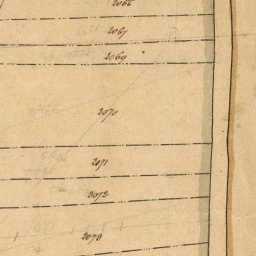 2067
2069
2070
2071
2072
2073